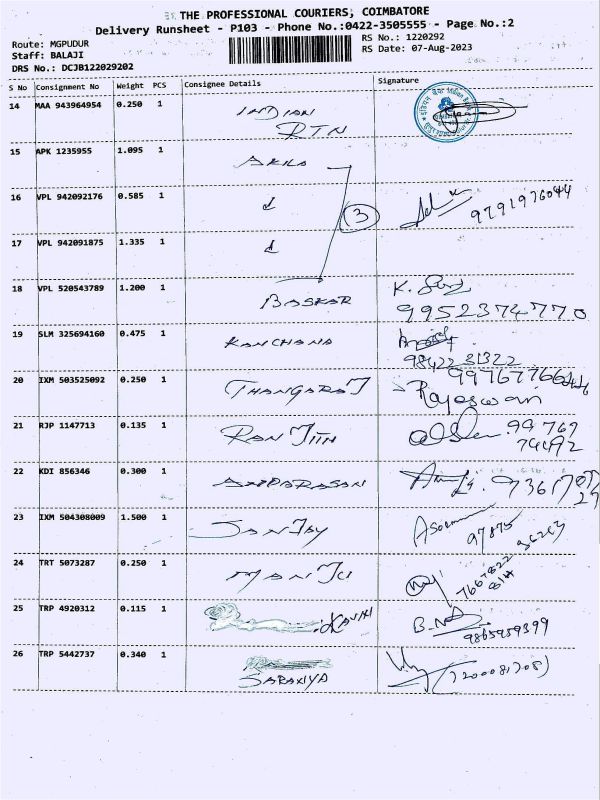 THE PROFESSIONAL COURIERS, COIMBATORE
Delivery Runsheet - P103 - Phone No.:0422-3505555 - Page No.:2
Route: MGPUDUR
RS No.: 1220292
Staff: BALAJI
RS Date: 07-Aug-2023
DRS No.: DCJB122029202
S No Consignment No Weight PCS Consignee Details Signature
14 MAA 943964954 0.250 1 INDIAN
RTN
15 APK 1235955 1.095 1 AKILA
16 VPL 942092176 0.585 1 d 3 9791976044
17 VPL 942091875 1.335 1 d
18 VPL 520543789 1.200 1 BASKAR K.
9952374770
19 SLM 325694160 0.475 1 KANCHANA
98422 31322
20 IXM 503525092 0.250 1 THANGARAJ
Rajeswari
21 RJP 1147713 0.135 1 RANJITH 99769
74492
22 KDI 856346 0.300 1 ANPARASAN
23 IXM 504308009 1.500 1 SANJAY 97875
24 TRT 5073287 0.250 1 MANJU 7667822
25 TRP 4920312 0.115 1
9865959399
26 TRP 5442737 0.340 1
SARANIYA